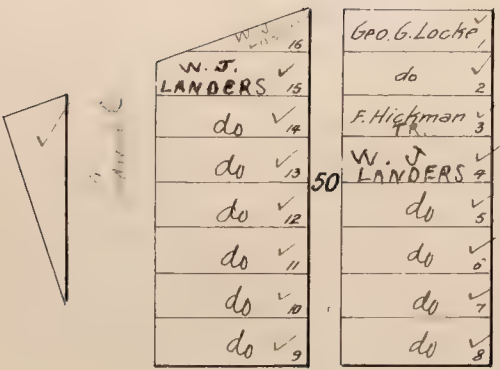 W. J.
16
W. J.
LANDERS ✓ 15
do ✓ 14
do ✓ 13
do ✓ 12
do ✓ 11
do ✓ 10
do ✓ 9
50
Geo. G. Locke ✓ 1
do ✓ 2
F. Hickman ✓ 3
TR.
W. J
LANDERS ✓ 4
do ✓ 5
do ✓ 6
do ✓ 7
do ✓ 8